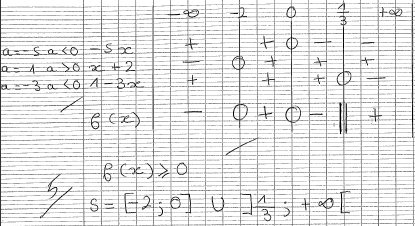 -∞ -2 0 1/3 +∞
a=-5 a<0 -5x + + 0 - -
a=1 a>0 x+2 - 0 + + +
a=-3 a<0 1-3x + + + 0 -
f(x) - 0 + 0 - || +
f(x) ≥ 0
S = [-2;0] U ]1/3; +∞[